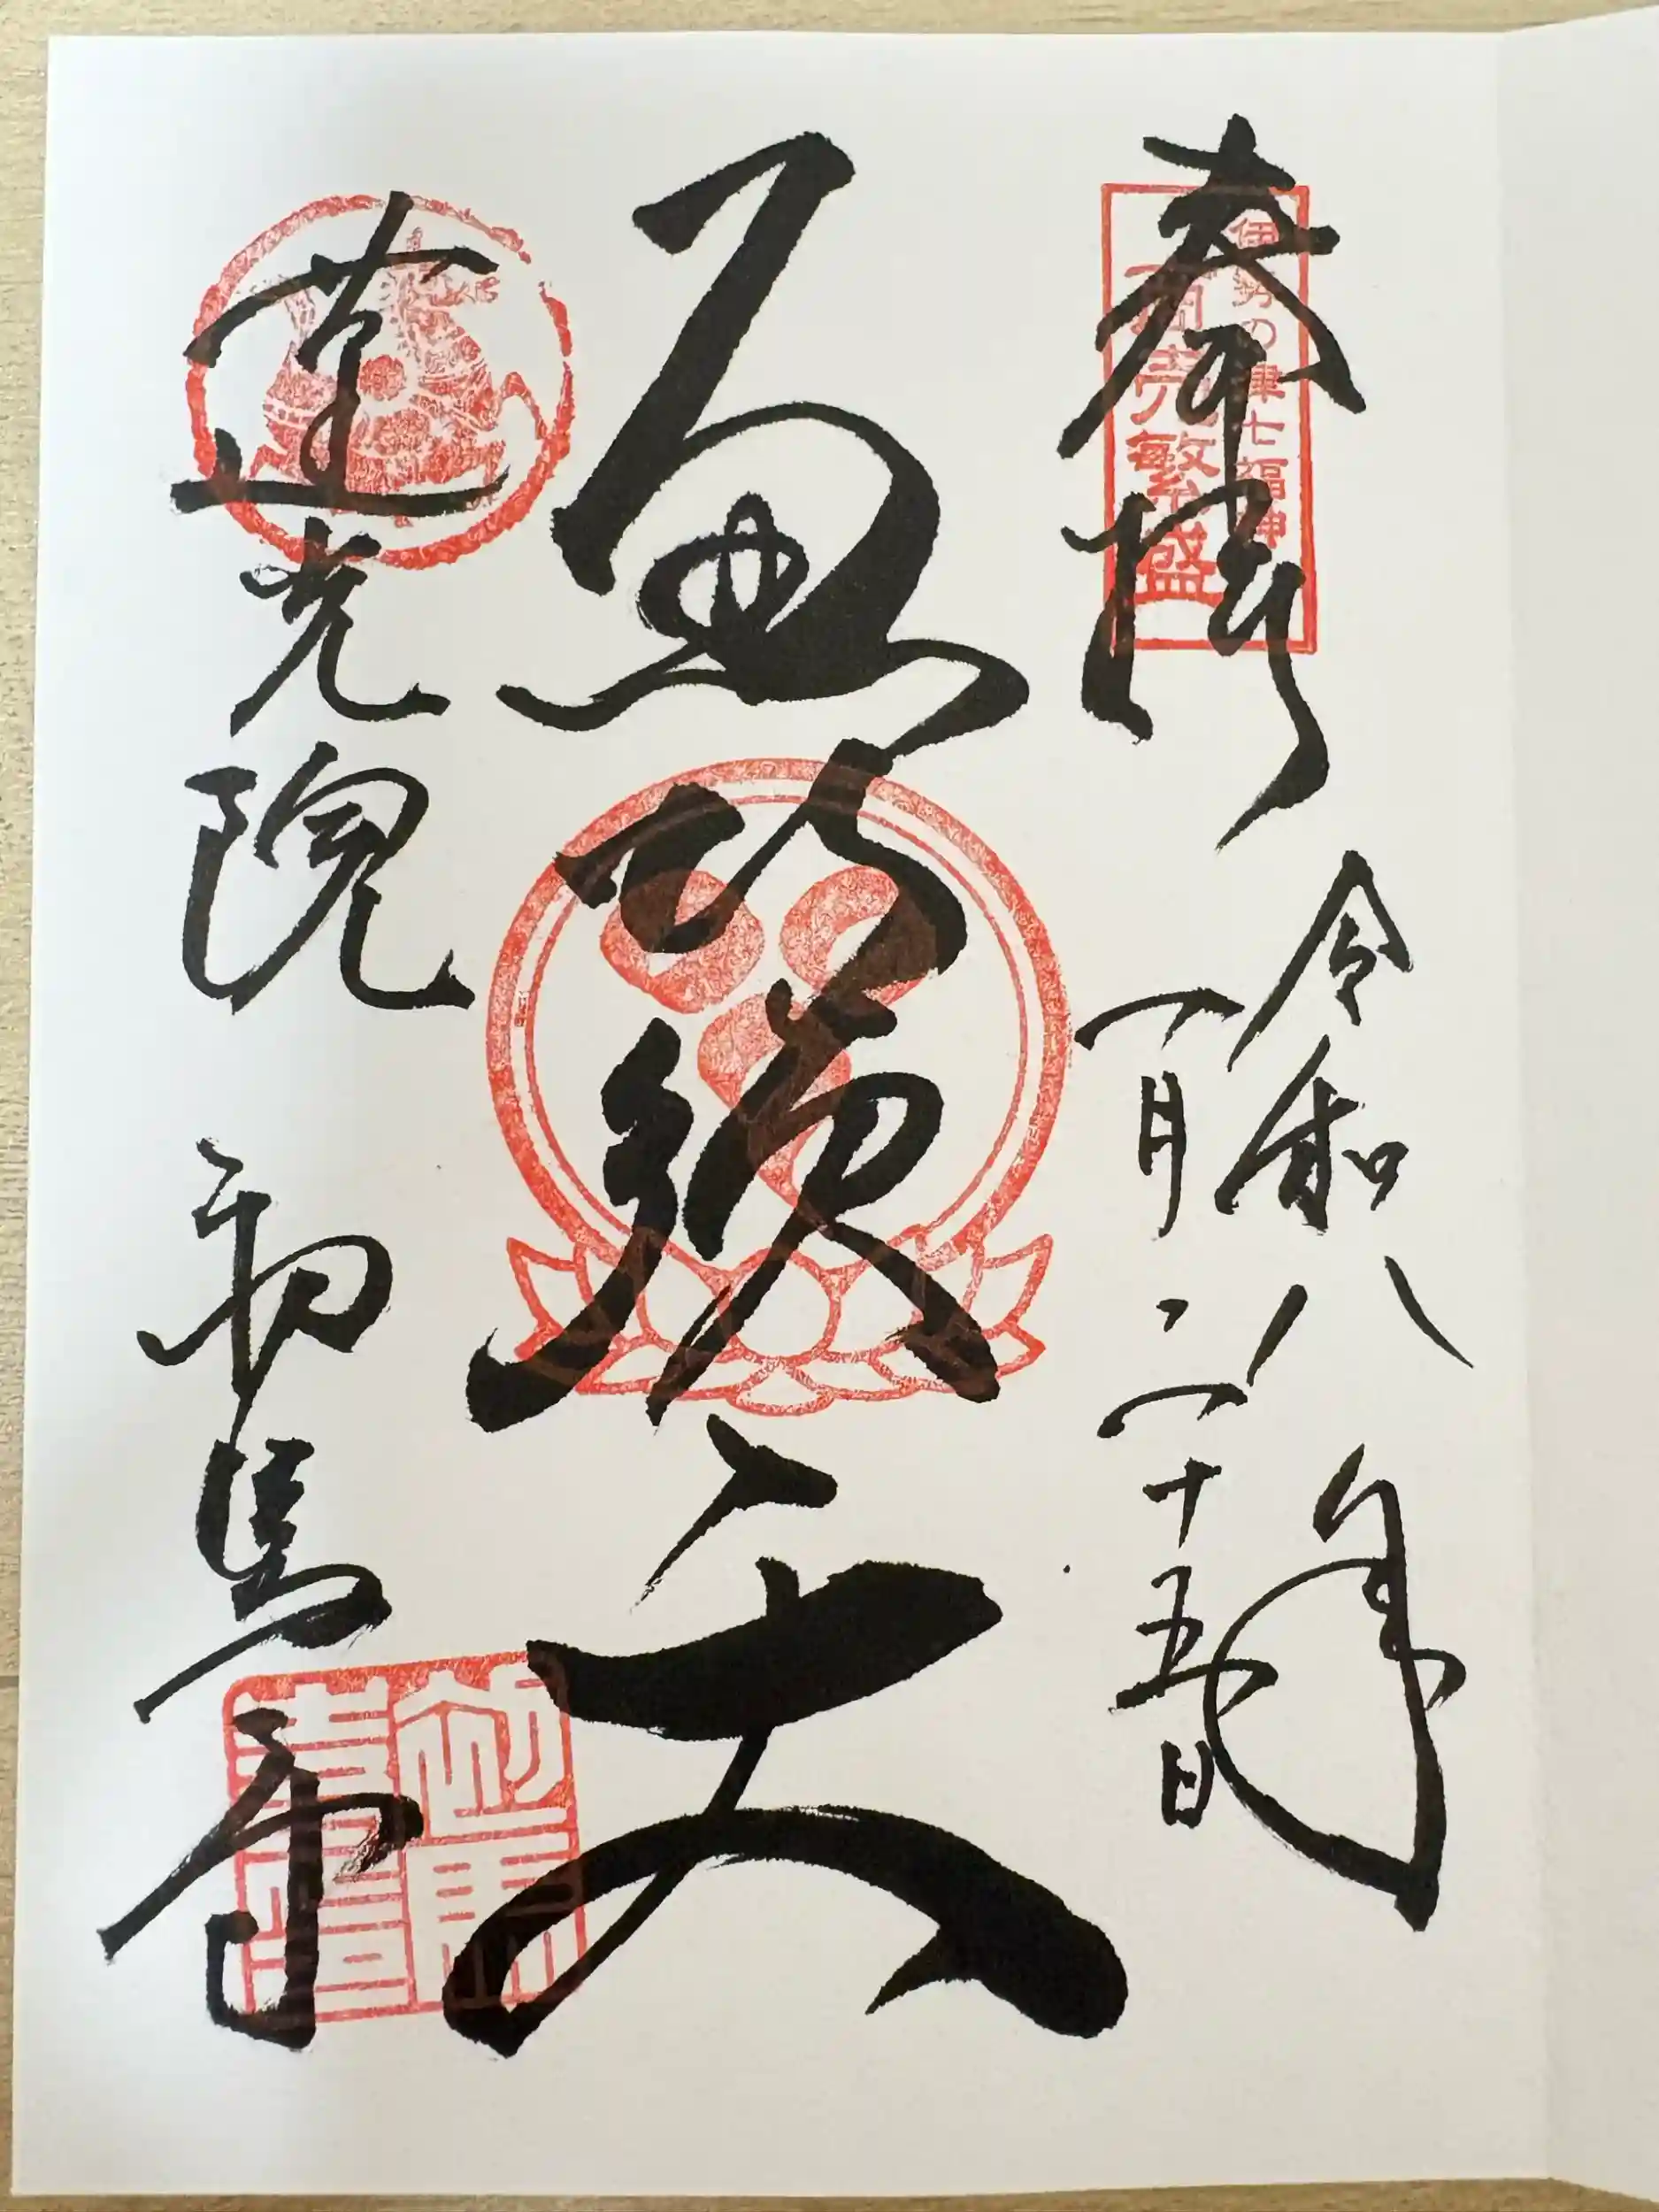 奉拝
伊勢の津七福神
商売繁盛
令和八年
一月二十五日
恵比須天
蓮光院 初馬寺